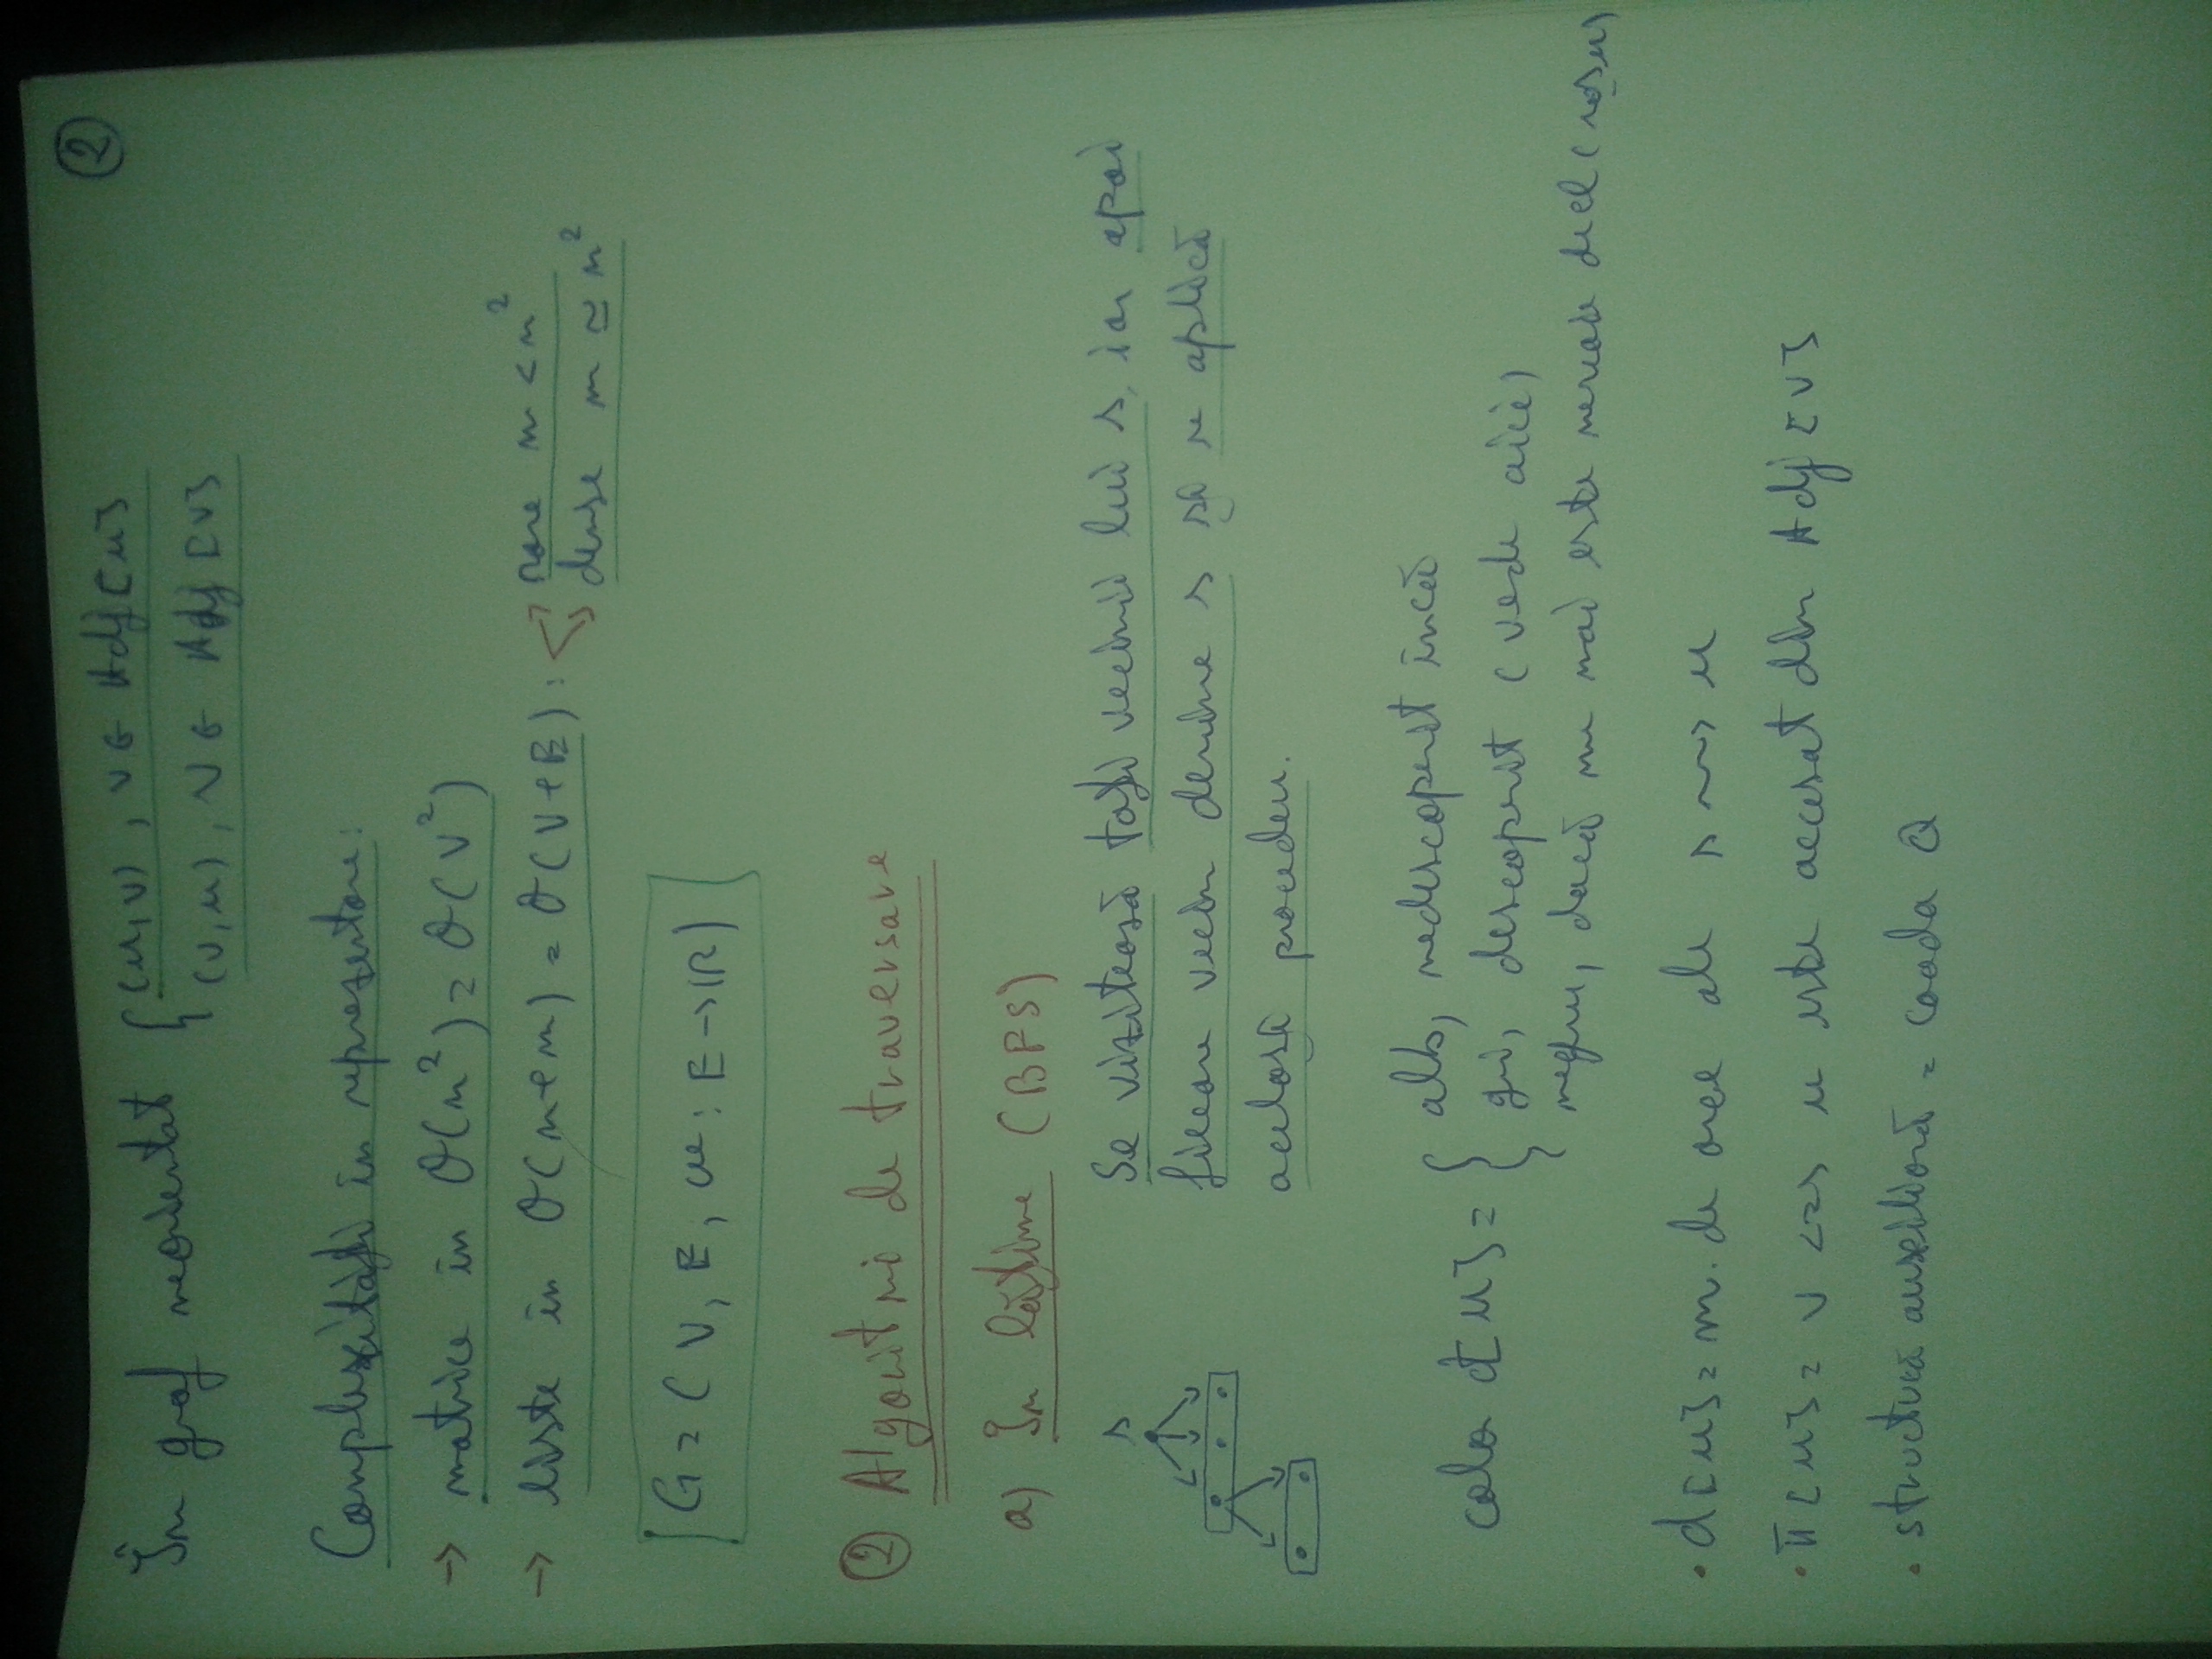 2
În graf neorientat { (u,v), v ∈ Adj[u]
(v,u), v ∈ Adj[v]
Complexități în reprezentare:
→ matrice în O(n²) = O(V²)
→ liste în O(n+m) = O(V+E): rare m < n²
dense m ≃ n²
G = (V, E, w: E → R)
② Algoritmi de traversare
a) În lățime (BFS)
s
Se vizitează toți vecinii lui s, iar apoi
fiecare vecin devine s și se aplică
același procedeu.
color c[u] = { alb, nedescoperit încă
gri, descoperit (verde aici)
negru, dacă nu mai este nevoie de el (roșu)
• d[u] = nr. de arce ale s ⇝ u
• π[u] = v <=> u este accesat din Adj[v]
• structură auxiliară = coada Q